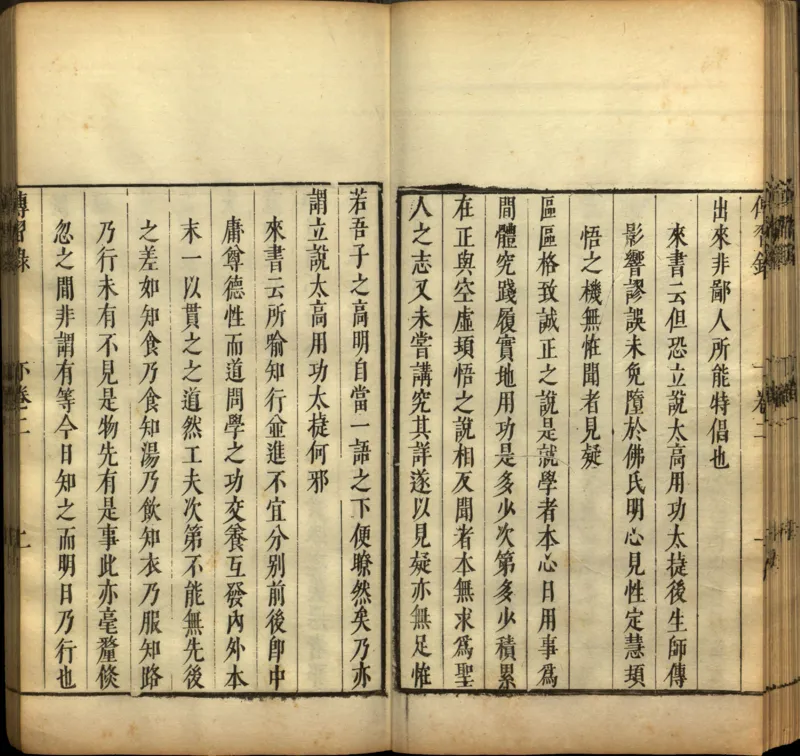 出來非鄙人所能特倡也
來書云但恐立說太高用功太㨗後生師傳
影響謬誤未免墮於佛氏明心見性定慧頓
悟之機無恠聞者見疑
區區格致誠正之說是就學者本心日用事爲
間體究踐履實地用功是多少次第多少積累
在正與空虛頓悟之說相反聞者本無求爲聖
人之志又未嘗講究其詳遂以見疑亦無足恠
若吾子之高明自當一語之下便瞭然矣乃亦
謂立說太高用功太㨗何邪
來書云所喻知行並進不宜分别前後卽中
庸尊德性而道問學之功交養互發內外本
末一以貫之之道然工夫次第不能無先後
之差如知食乃食知湯乃飲知衣乃服知路
乃行未有不見是物先有是事此亦毫釐倏
忽之間非謂有等今日知之而明日乃行也
傳習錄
卷二